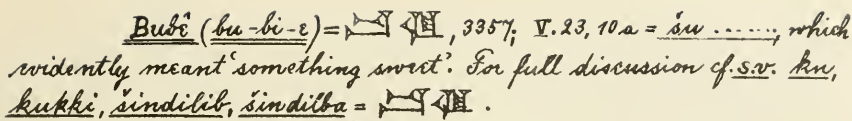 Bubê (bu-bi-e) = , 3357; V. 23, 10a = šu ......, which
evidently meant 'something sweet'. For full discussion cf. s.v. ku,
kukki, šindilib, šindilba = .